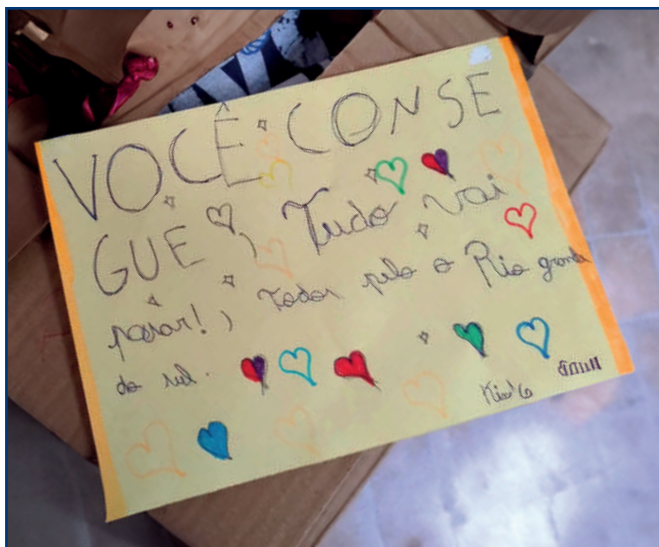 VOCÊ CONSE
GUE, Tudo vai
passar!, Todos pelo o Rio grande
do sul.